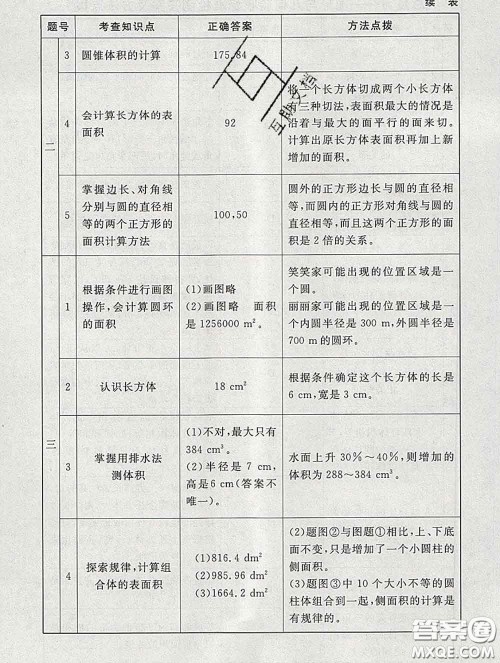 续 表
题号 考查知识点 正确答案 方法点拨
二
3 圆锥体积的计算 175.84
4
会计算长方体的表
面积
92
将一个长方体切成两个小长方体
有三种切法,表面积最大的情况是
沿着与最大的面平行的面来切。
计算出原长方体表面积再加上新
增加的面积。
5
掌握边长、对角线
分别与圆的直径相
等的两个正方形的
面积计算方法
100,50
圆外的正方形边长与圆的直径相
等,而圆内的正方形对角线与圆的
直径相等,而且这两个正方形的面
积是 2 倍的关系。
三
1
根据条件进行画图
操作,会计算圆环
的面积
(1)画图略
(2)画图略 面积
是 1256000 m²。
笑笑家可能出现的位置区域是一
个圆。
丽丽家可能出现的位置区域是一
个内圆半径是 300 m,外圆半径是
700 m 的圆环。
2
认识长方体
18 cm²
根据条件确定这个长方体的长是
6 cm,宽是 3 cm。
3
掌握用排水法
测体积
(1)不对,最大只有
384 cm³。
(2)半径是 7 cm,
高是 6 cm(答案不
唯一)。
水面上升 30%~40%,则增加的
体积为 288~384 cm³。
4
探索规律,计算组
合体的表面积
(1)816.4 dm²
(2)985.96 dm²
(3)1664.2 dm²
(2)题图②与图题①相比,上、下底
面不变,只是增加了一个小圆柱的
侧面积。
(3)题图③中 10 个大小不等的圆
柱体组合到一起,侧面积的计算是
有规律的。
答案圈
MXQE.COM